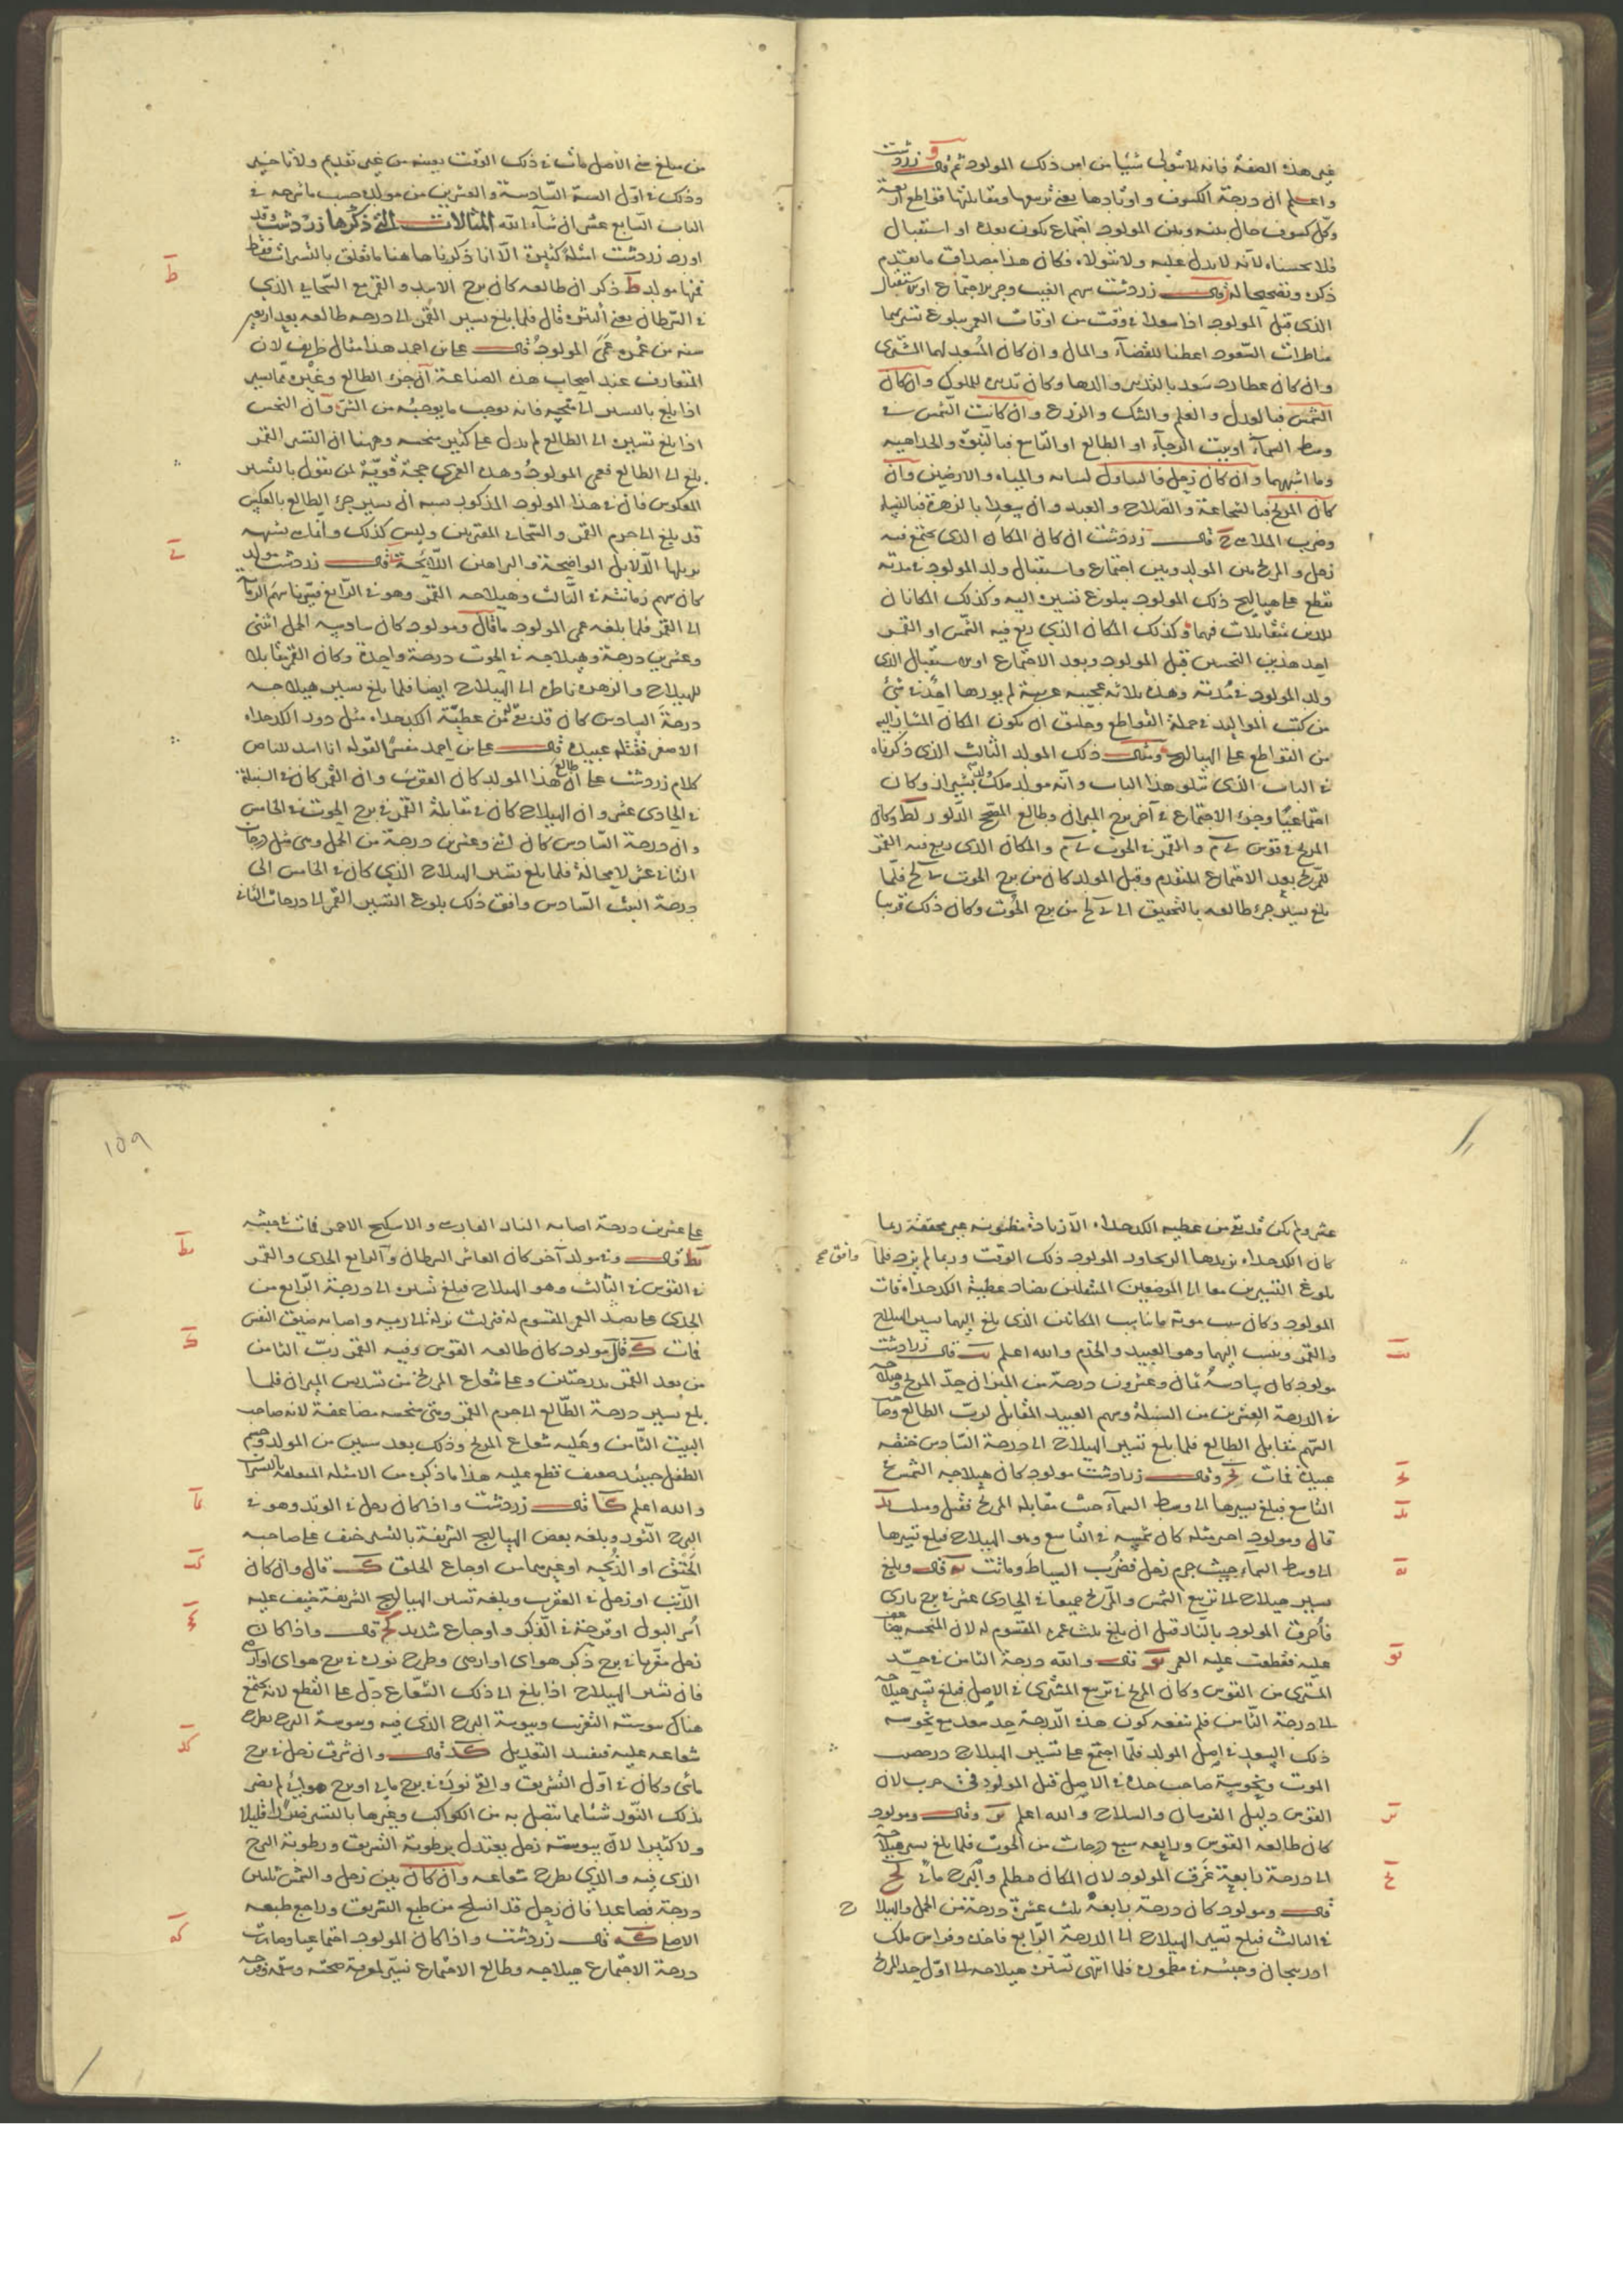 غير هذه الصفة فانه لا يتولى شيئا من امر ذلك المولود ثم قال زردشت
واعلم ان درجة الكسوف واوتادها يعني تربيعها ومقابلتها قواطع اربعة
وكل كسوف حال بينه وبين المولود اجتماع يكون بعده او استقبال
فلا تحسبناه لانه لا يدل عليه ولا يتولاه فكان هذا مصداق ما تقدم
ذكره وتصحيحا له ز قال زردشت سهم الغيب وجزء الاجتماع او الاستقبال
الذي قبل المولود اذا سعدا في وقت من اوقات العمر ببلوغ تسييرهما
مناظرات السعود اعطيا للقضاء والمال وان كان المسعد لهما المشتري
وان كان عطارد سعد بالتدبير والدها وكان تدبير للملوك وان كان
الشمس فبالعدل والعلم والنسك والزرع وان كانت الشمس في
وسط السماء او بيت الرجاء او الطالع او التاسع فبالنبوة والجد اهيبه
وما اشبههما وان كان زحل فالتناول لسانه والمياه والارضين وان
كان المريخ فبالشجاعة والصلاح والعبيد وان سعدا بالزهرة فبالنساء
وضرب الملاهي ح قال زردشت ان كان المكان الذي يجتمع فيه
زحل والمريخ بين المولد وبين اجتماع واستقبال ولد المولود في مدته
يقطع على هياليج ذلك المولود ببلوغ تسييره اليه وكذلك المكانان
اللذان يتقابلان فيهما وكذلك المكان الذي ربع فيه الشمس او القمر
احد هذين النحسين قبل المولود وبعد الاجتماع او الاستقبال الذي
ولد المولود في مدته وهذه ثلاثة عجيبة غريبة لم يوردها احد في شيء
من كتب المواليد في جملة القواطع وخليق ان يكون المكان المشار اليه
من القواطع على الهياليج ومثال ذلك المولد الثالث الذي ذكرناه
في الباب الذي يتلو هذا الباب وانه مولد ملك ولد بشيراز وكان
اجتماعيا وجزء الاجتماع في آخر برج الميزان وطالع المصحح الدلو ر لط وكان
المريخ في قوس والقمر في الحوت والمكان الذي ربع فيه القمر
للمريخ بعد الاجتماع المتقدم وقبل المولد كان من برج الحوت فلما
بلغ تسيير جزء طالعه بالتحقيق الى من برج الحوت وكان ذلك قريبا
من مبلغ في الاصل مات في ذلك الوقت بعينه من غير تقديم ولا تاخير
وذلك في اول السنة السادسة والعشرين من مولده حسب ما شرحه في
الباب السابع عشر ان شاء الله المثالات التي ذكرها زردشت وقد
اورد زردشت امثلة كثيرة الا انا ذكرنا ها هنا ما تعلق بالتسييرات فقط
ط
فمنها مولد ط ذكر ان طالعه كان برج الاسد والقمر مع السحابي الذي
في السرطان يعني النثرة قال فلما بلغ تسيير القمر الى درجة طالعه بعد اربعين
سنة من عمره عمي المولود قال علي بن احمد هذا مثال ظريف لان
المتعارف عند اصحاب هذه الصناعة ان جزء الطالع وغيره مما يسير
اذا بلغ بالتسيير الى متحيه فانه يوجب ما يوجبه من الشر وان النحس
اذا بلغ تسييره الى الطالع لم يدل على كبير منحسه وههنا ان التسيير القمر
بلغ الى الطالع فعمي المولود وهذه لعمري حجة قوية لمن يقول بالتسيير
المعكوس فان في هذا المولود المذكور سببه ان تسيير جزء الطالع بالعكس
قد بلغ الى جرم القمر والسحابي المقترنين وليس كذلك
ي
يزيلها الدلايل الواضحة والبراهين اللائحة ي قال زردشت مولد
كان سهم زمانته في الثالث وهيلاجه القمر وهو في الرابع فسيرنا سهم الزمانة
الى القمر فلما بلغه عمي المولود يا قال ومولود كان سادسه الحمل اثنتي
وعشرين درجة وهيلاجه في الحوت درجة واحدة وكان القمر مقابلا
للهيلاج والزهرة ناظرة الى الهيلاج ايضا فلما بلغ تسيير هيلاجه
درجة السادس كان قد بقي من عطية الكدخداه مثل دور الكدخداه
الاصغر فقتله عبيده قال علي بن احمد مفسر القوله
كلام زردشت على ان طالع هذا المولد كان العقرب وان القمر كان في السنبلة
في الحادي عشر وان الهيلاج كان في مقابلة القمر في برج الحوت في الخامس
وان درجة السادس كان اثني وعشرين درجة من الحمل وهي مثل درجات
الثاني عشر لا محالة فلما بلغ تسيير الهيلاج الذي كان في الخامس الى
درجة البيت السادس وافق ذلك بلوغ التسيير القمر الى درجات الثاني
عشر ولم يكن قد بقي من عطيه الكدخداه الا زيادة مظنونة غير محققة ربما
كان الكدخداه يزيدها او يجاوز المولود ذلك الوقت وربما لم يزد فلما وافق صح
بلوغ التسييرين معا الى الموضعين المشكلين نفاد عطية الكدخداه مات
المولود وكان سبب موته ما يناسب المكانين الذي بلغ اليهما تسيير الهيلاج
والقمر وينسب اليهما وهو العبيد والخدم والله اعلم يب قال زرادشت
يب
مولود كان سادسه ثمان وعشرون درجة من الميزان حد المريخ وهيلاجه
في الدرجة العشرين من السنبلة وسهم العبيد المقابل لرب الطالع وصاحب
السهم مقابل الطالع فلما بلغ تسيير الهيلاج الى درجة السادس خنقه
عبيده فمات يج وقال زرادشت مولود كان هيلاجه الشمس في
يج
التاسع فبلغ تسييرها الى وسط السماء حيث مقابلة المريخ فقتل وصلب يد
يد
قال ومولود اخر مثله كان شمسه في التاسع وهو الهيلاج فبلغ تسييرها
الى وسط السماء حيث جرم زحل فضرب السياط ومات يه قال وبلغ
يه
تسيير هيلاج الى تربيع الشمس والمريخ جميعا في الحادي عشر في برج ناري
فاحرق المولود بالنار قبل ان يبلغ ثلث عمره المقسوم له لان المنحسه
عليه فقطعت عليه العمر يو قال والله درجة الثامن في حد
يو
المشتري من القوس وكان المريخ في تربيع المشتري في الاصل فبلغ تسيير هيلاجه
الى درجة الثامن فلم ينفعه كون هذه الدرجة حد سعد مع نحوسه
ذلك السعد في اصل المولد فلما اجتمع على تسيير الهيلاج درجة بيت
الموت ونحوسة صاحب حده في الاصل قتل المولود في حرب لان
القوس دليل الفرسان والسلاح والله اعلم يز وقال ومولود
يز
كان طالعه القوس ورابعه سبع درجات من الحوت فلما بلغ تسيير هيلاجه
الى درجة رابعة غرق المولود لان المكان مظلم والبرج مائي يح
يح
قال ومولود كان درجة رابعه ثلث عشرة درجة من الحمل والهيلاج
في الثالث فبلغ تسيير الهيلاج الى الدرجة الرابع فاخذه ملك
اذربيجان وحبسه في مطمورة فلما انتهى تسيير هيلاجه الى اول حد المريخ
١٥٩
على عشرين درجة اصابه النار الفارسي والاسكيج الاحمر فمات في حبسه
يط
يط قال وفي مولد آخر كان العاشر السرطان والرابع الجدي والقمر
في القوس في الثالث وهو الهيلاج فبلغ تسييره الى درجة الرابع من
الجدي على نصف العمر المقسوم له فنزلت نزلة الى رئته واصابه ضيق النفس
ك
فمات ك قال مولود كان طالعه القوس وفيه القمر رب الثامن
من بعد القمر بدرجتين وعلى شعاع المريخ من تسديس الميزان فلما
بلغ تسيير درجة الطالع الى جرم القمر وهي منحسه مضاعفة لانه صاحب
البيت الثامن وعليه شعاع المريخ وذلك بعد سنتين من المولد وجسم
الطفل حينئذ ضعيف قطع عليه هذا ما ذكره من الامثلة المتعلقة بالتسييرات
كا
والله اعلم كا قال زردشت واذا كان زحل في الوتد وهو في
البرج الثور وبلغه بعض الهياليج الشريفة بالتسيير خيف على صاحبه
الخنق او الذبحه او غيرهما من اوجاع الحلق كب قال وان كان
كب
الذنب او زحل في العقرب وبلغه تسيير الهياليج الشريفة خيف عليه
اسر البول او قرحة في الذكر واوجاع شديدة كج قال واذا كان
كج
زحل مغربا في برج ذكر هوائي او ارضي وطرح نوره في برج هوائي او ارضي
فان تسيير الهيلاج اذا بلغ الى ذلك الشعاع دل على القطع لانه يجتمع
هناك يبوسة التغريب ويبوسة البرج الذي فيه ويبوسة البرج يطرح
شعاعه عليه فيفسد التعديل كد قال وان شرق زحل في برج
كد
مائي وكان في اول التشريق والقى نوره في برج مائي او برج هوائي لم يضر
بذلك النور شيئا مما يتصل به من الكواكب وغيرها بالتسيير ضررا قليلا
ولا كثيرا لان يبوسته زحل يعتدل برطوبة التشريق ورطوبة البرج
الذي فيه والذي يطرح شعاعه وان كان بين زحل والشمس ثلثين
درجة فصاعدا فان زحل قد انسلخ من طبع التشريق وراجع طبعه
الاصل كه قال زردشت واذا كان المولود اجتماعيا وصارت
كه
درجة الاجتماع هيلاجه وطالع الاجتماع تسيير لمعرفة صحته وسقمه